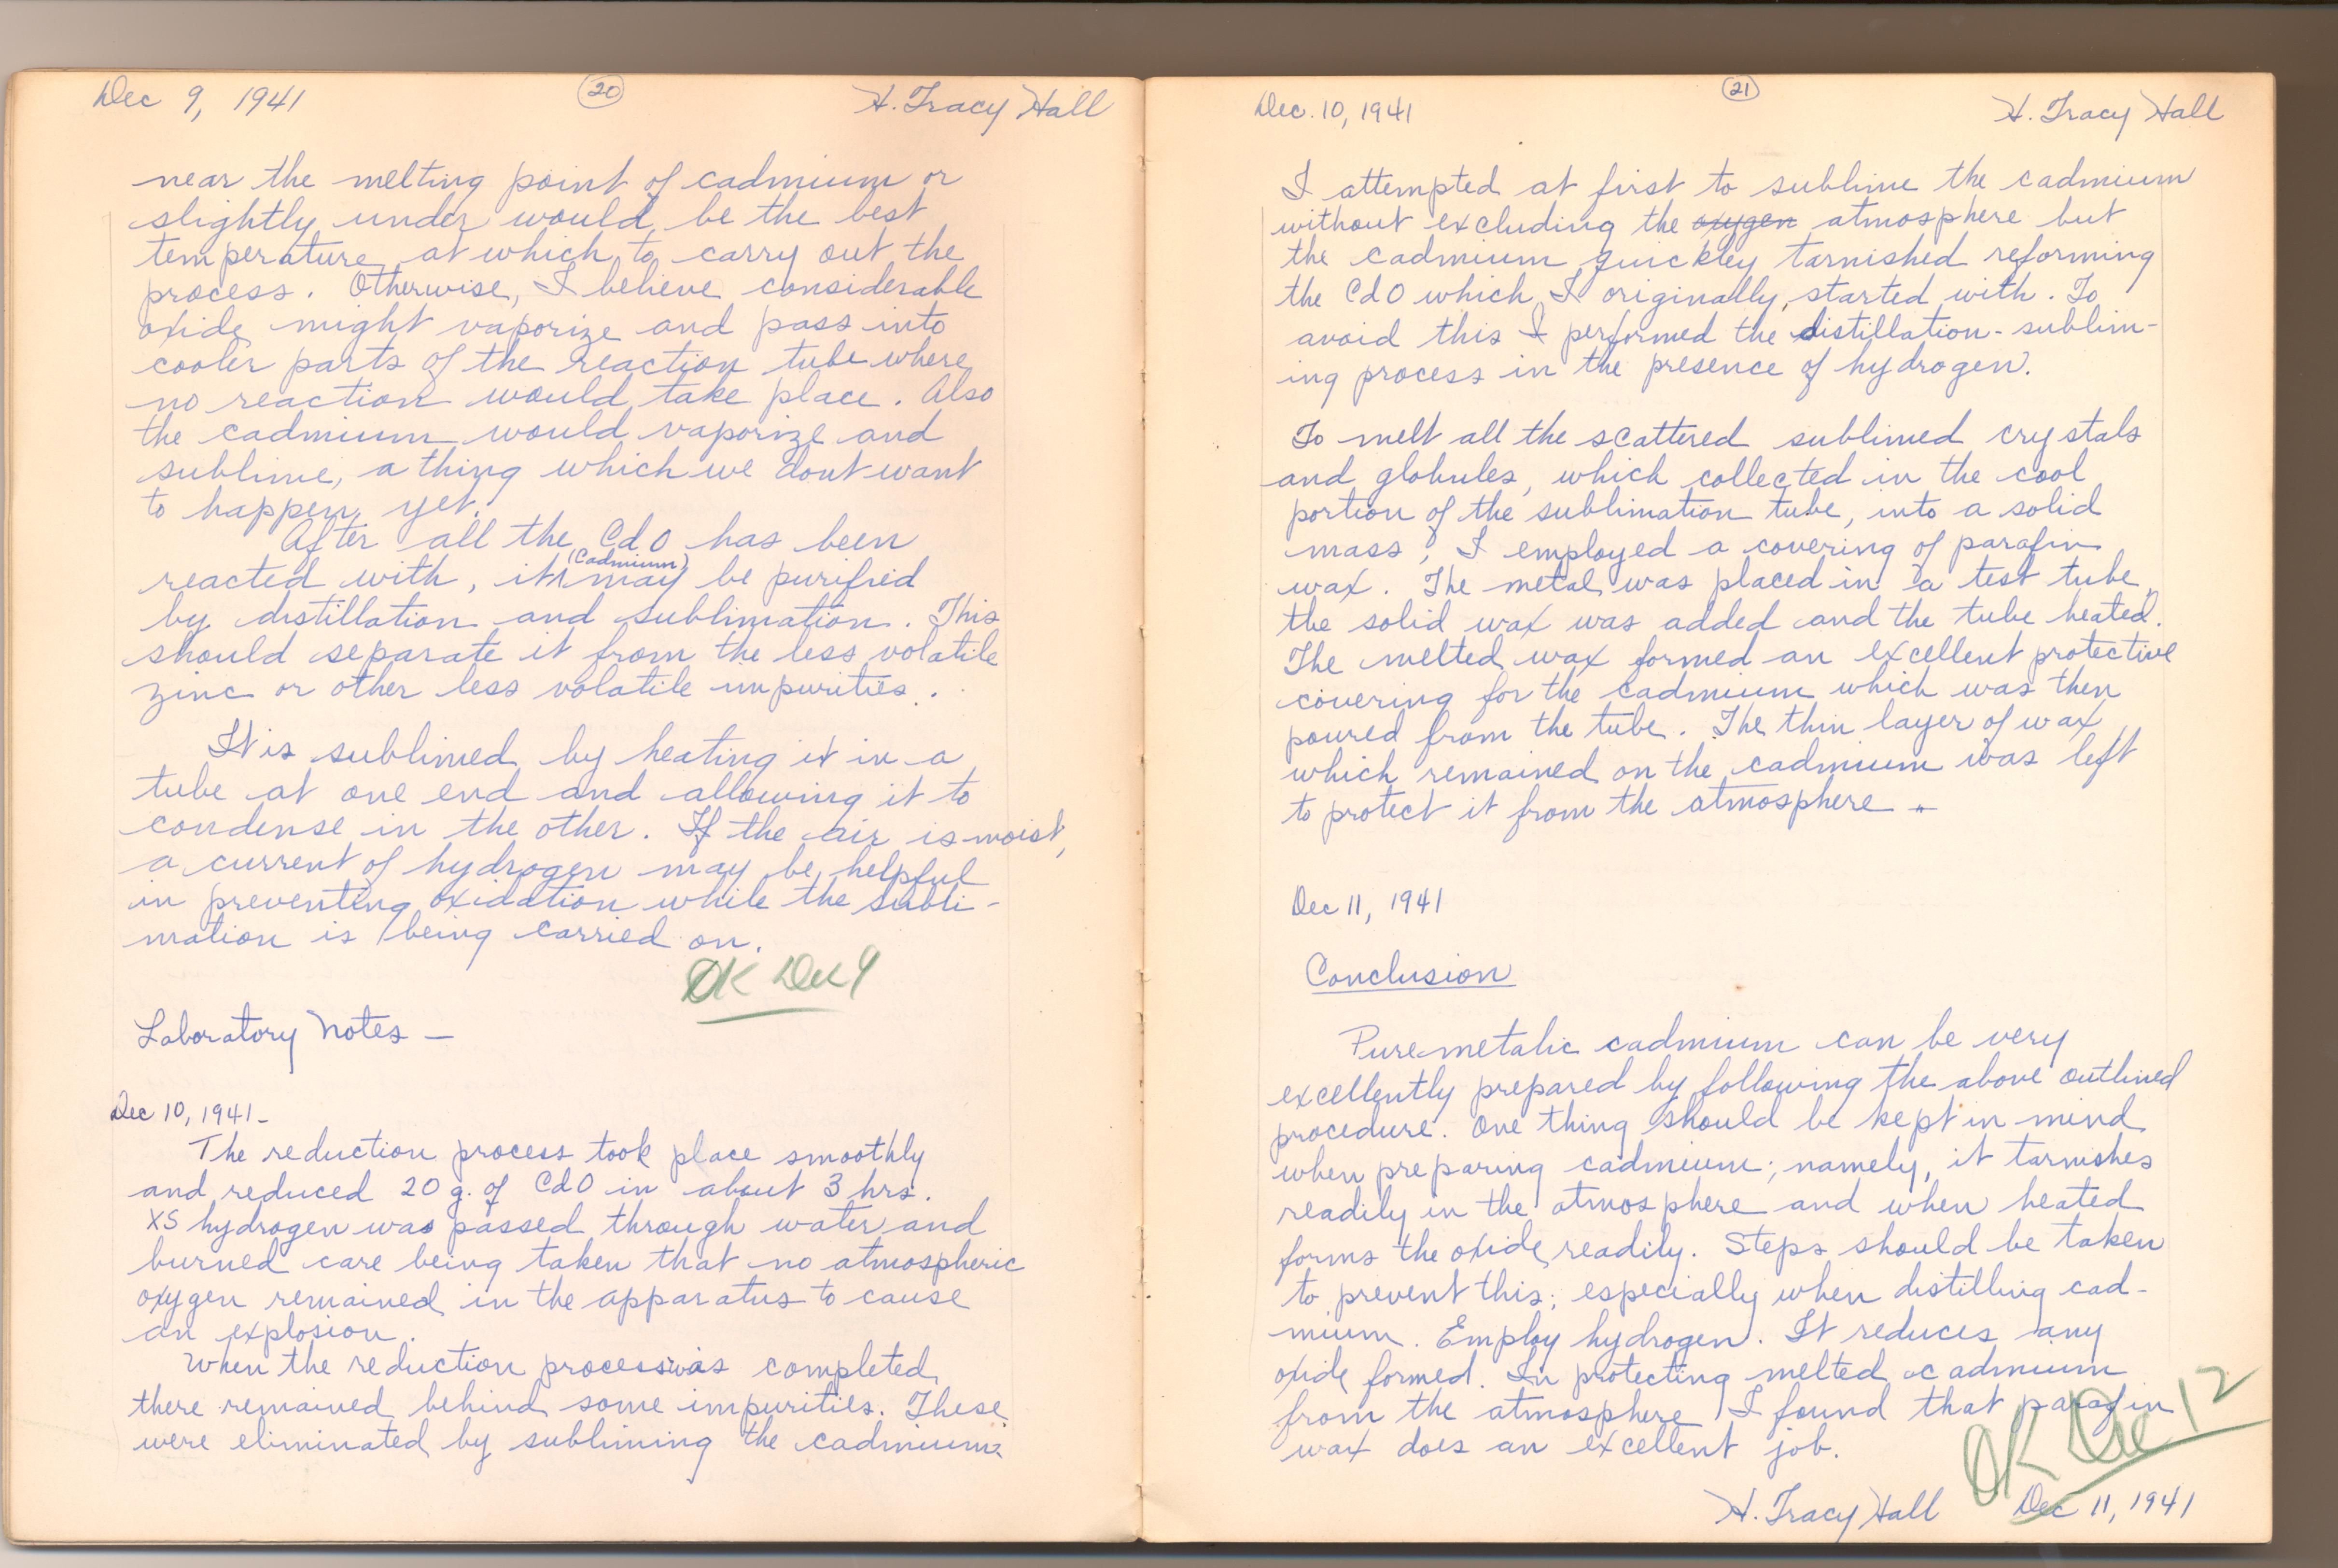 Dec 9, 1941 20 H. Tracy Hall
near the melting point of cadmium or
slightly under would be the best
temperature at which to carry out the
process. Otherwise, I believe considerable
oxide might vaporize and pass into
cooler parts of the reaction tube where
no reaction would take place. Also
the cadmium would vaporize and
sublime, a thing which we dont want
to happen yet.
After all the CdO has been
reacted with, it (Cadmium) may be purified
by distillation and sublimation. This
should separate it from the less volatile
zinc or other less volatile impurities.
It is sublimed by heating it in a
tube at one end and allowing it to
condense in the other. If the air is moist,
a current of hydrogen may be helpful
in preventing oxidation while the subli-
mation is being carried on.
OK Dec 9
Laboratory Notes —
Dec 10, 1941 -
The reduction process took place smoothly
and reduced 20 g. of CdO in about 3 hrs.
XS hydrogen was passed through water and
burned care being taken that no atmospheric
oxygen remained in the apparatus to cause
an explosion.
When the reduction process was completed
there remained behind some impurities. These
were eliminated by subliming the cadmium.
Dec. 10, 1941 21 H. Tracy Hall
I attempted at first to sublime the cadmium
without excluding the oxygen atmosphere but
the cadmium quickley tarnished reforming
the CdO which I originally started with. To
avoid this I performed the distillation-sublim-
ing process in the presence of hydrogen.
To melt all the scattered sublimed crystals
and globules, which collected in the cool
portion of the sublimation tube, into a solid
mass, I employed a covering of parafin
wax. The metal was placed in a test tube,
the solid wax was added and the tube heated.
The melted wax formed an excellent protective
covering for the cadmium which was then
poured from the tube. The thin layer of wax
which remained on the cadmium was left
to protect it from the atmosphere.
Dec 11, 1941
Conclusion
Pure metalic cadmium can be very
excellently prepared by following the above outlined
procedure. One thing should be kept in mind
when preparing cadmium; namely, it tarnishes
readily in the atmosphere and when heated
forms the oxide readily. Steps should be taken
to prevent this; especially when distilling cad-
mium. Employ hydrogen. It reduces any
oxide formed. In protecting melted cadmium
from the atmosphere I found that parafin
wax does an excellent job.
OK Dec 12
H. Tracy Hall Dec 11, 1941